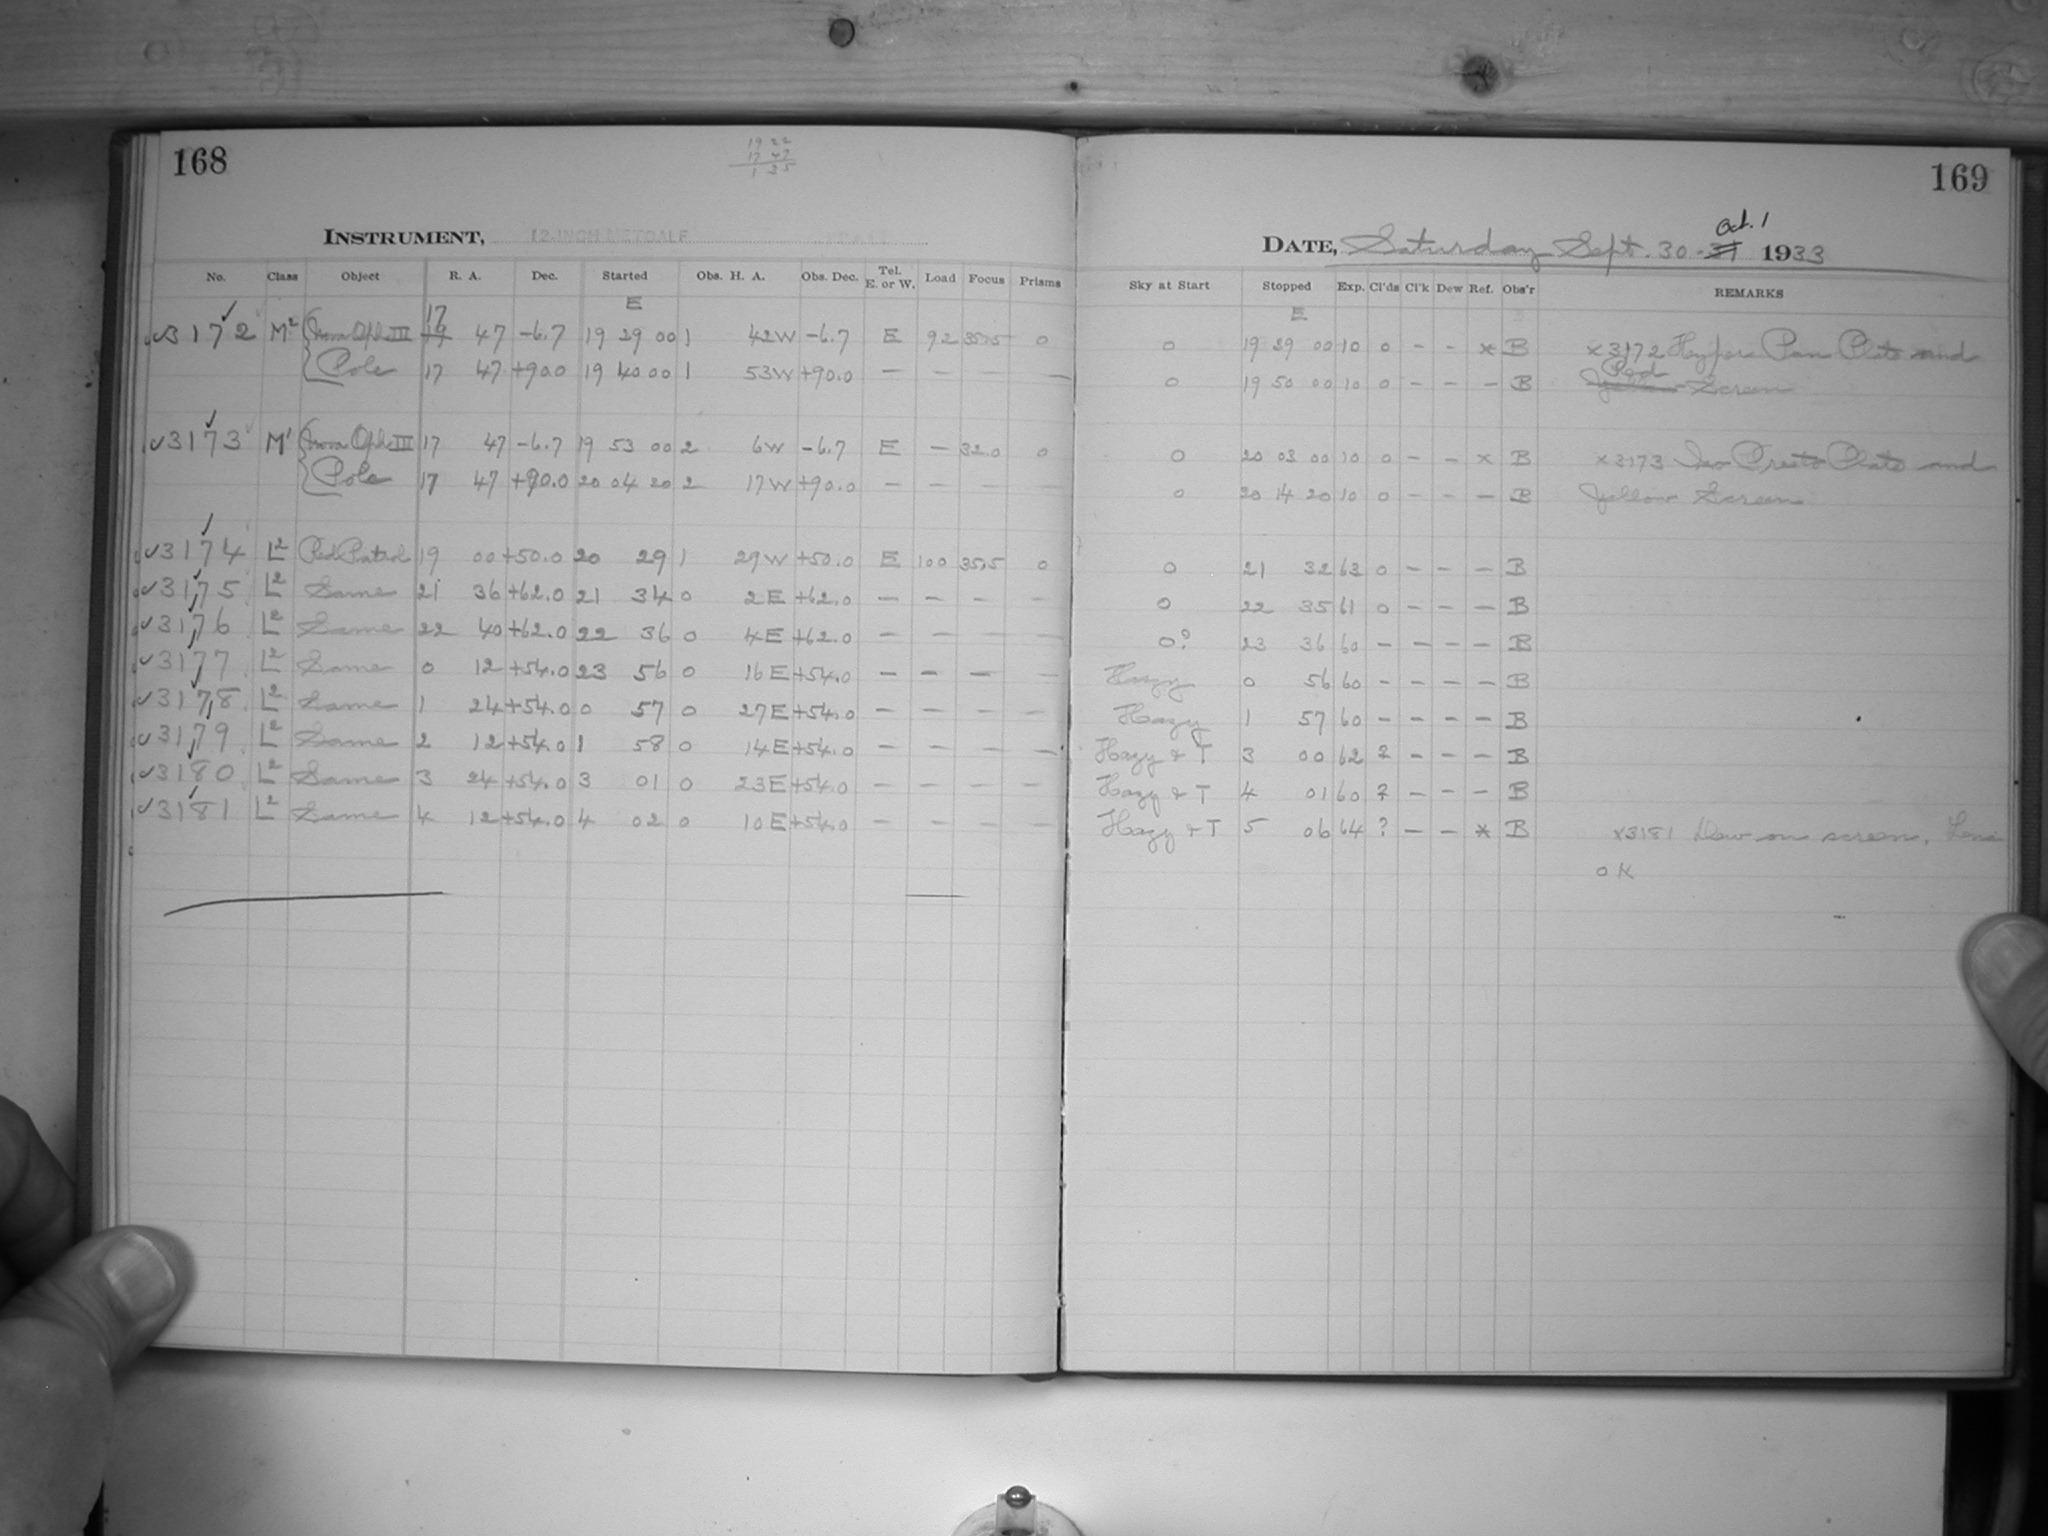 168
19 22
17 47
1 35
INSTRUMENT, 12-INCH METCALF
No. Class Object R. A. Dec. Started Obs. H. A. Obs. Dec. Tel. E. or W. Load Focus Prisms
E
17
3172 M2 Nova Oph III 19 47 -6.7 19 29 00 1 42W -6.7 E 92 35.5 0
Pole 17 47 +90.0 19 40 00 1 53W +90.0 — — — —
3173 M1 Nova Oph III 17 47 -6.7 19 53 00 2 6W -6.7 E — 32.0 0
Pole 17 47 +90.0 20 04 20 2 17W +90.0 — — — —
3174 L2 Red Patrol 19 00 +50.0 20 29 1 29W +50.0 E 100 35.5 0
3175 L2 Same 21 36 +62.0 21 34 0 2E +62.0 — — — —
3176 L2 Same 22 40 +62.0 22 36 0 4E +62.0 — — — —
3177 L2 Same 0 12 +54.0 23 56 0 16E +54.0 — — — —
3178 L2 Same 1 24 +54.0 0 57 0 27E +54.0 — — — —
3179 L2 Same 2 12 +54.0 1 58 0 14E +54.0 — — — —
3180 L2 Same 3 24 +54.0 3 01 0 23E +54.0 — — — —
3181 L2 Same 4 12 +54.0 4 02 0 10E +54.0 — — — —
169
Oct. 1
DATE, Saturday Sept. 30-31 1933
Sky at Start Stopped Exp. Cl'ds Cl'k Dew Ref. Obs'r REMARKS
E
0 19 39 00 10 0 — — x B x3172 Hypers Pan Plate and
Red
0 19 50 00 10 0 — — — B Yellow Screen
0 20 03 00 10 0 — — x B x3173 Iso Presto Plate and
0 20 14 20 10 0 — — — B Yellow Screen
0 21 32 63 0 — — — B
0 22 35 61 0 — — — B
0? 23 36 60 — — — — B
Hazy 0 56 60 — — — — B
Hazy 1 57 60 — — — — B
Hazy & T 3 00 62 ? — — — B
Hazy & T 4 01 60 ? — — — B
Hazy & T 5 06 64 ? — — x B x3181 Dew on screen, Lens
OK